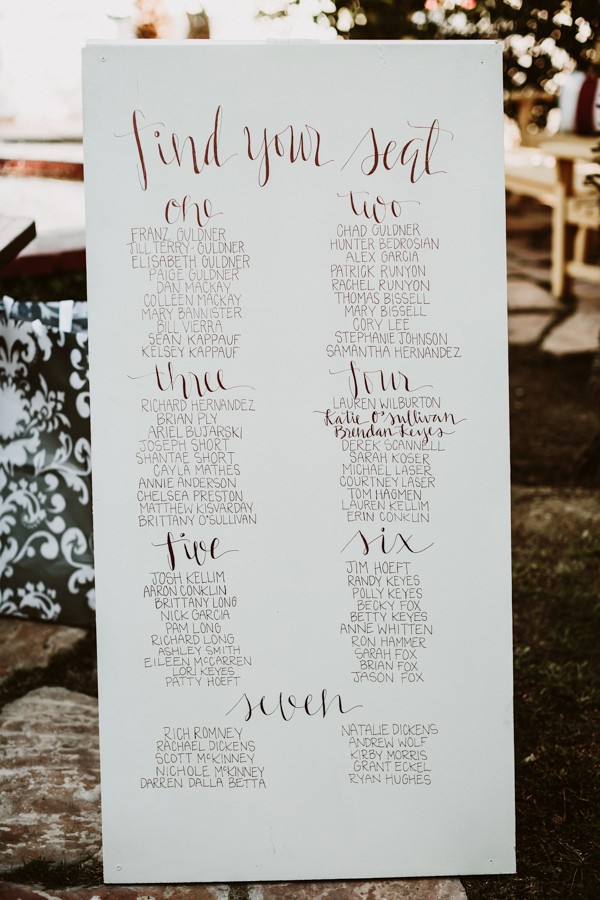 find your seat
one
FRANZ GULDNER
JILL TERRY-GULDNER
ELISABETH GULDNER
PAIGE GULDNER
DAN MACKAY
COLLEEN MACKAY
MARY BANNISTER
BILL VIERRA
SEAN KAPPAUF
KELSEY KAPPAUF
two
CHAD GULDNER
HUNTER BEDROSIAN
ALEX GARCIA
PATRICK RUNYON
RACHEL RUNYON
THOMAS BISSELL
MARY BISSELL
CORY LEE
STEPHANIE JOHNSON
SAMANTHA HERNANDEZ
three
RICHARD HERNANDEZ
BRIAN PLY
ARIEL BUJARSKI
JOSEPH SHORT
SHANTAE SHORT
CAYLA MATHES
ANNIE ANDERSON
CHELSEA PRESTON
MATTHEW KISVARDAY
BRITTANY O'SULLIVAN
four
LAUREN WILBURTON
Katie O'Sullivan
Brendan Keyes
DEREK SCANNELL
SARAH KOSER
MICHAEL LASER
COURTNEY LASER
TOM HAGMEN
LAUREN KELLIM
ERIN CONKLIN
five
JOSH KELLIM
AARON CONKLIN
BRITTANY LONG
NICK GARCIA
PAM LONG
RICHARD LONG
ASHLEY SMITH
EILEEN McCARREN
LORI KEYES
PATTY HOEFT
six
JIM HOEFT
RANDY KEYES
POLLY KEYES
BECKY FOX
BETTY KEYES
ANNE WHITTEN
RON HAMMER
SARAH FOX
BRIAN FOX
JASON FOX
seven
RICH ROMNEY
RACHAEL DICKENS
SCOTT McKINNEY
NICHOLE McKINNEY
DARREN DALLA BETTA
NATALIE DICKENS
ANDREW WOLF
KIRBY MORRIS
GRANT ECKEL
RYAN HUGHES